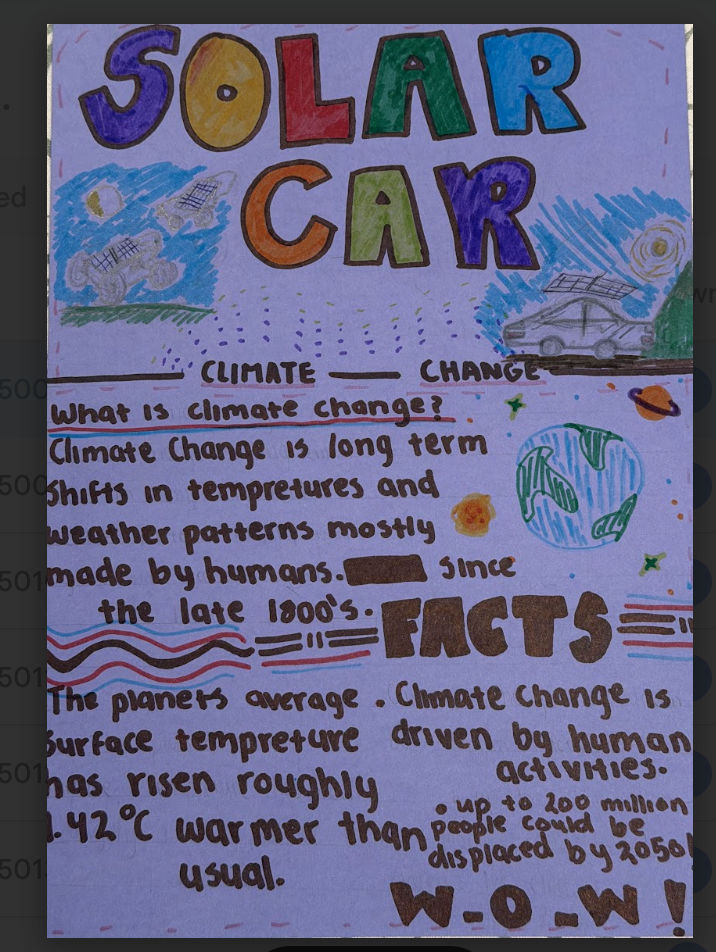 SOLAR
CAR
CLIMATE CHANGE
What is climate change?
Climate Change is long term
shifts in tempretures and
weather patterns mostly
made by humans. since
the late 1800's.
FACTS
The planets average
surface tempreture
has risen roughly
1.42°C warmer than
usual.
. Climate Change is
driven by human
activities.
. up to 200 million
people could be
displaced by 2050!
W-O-W!